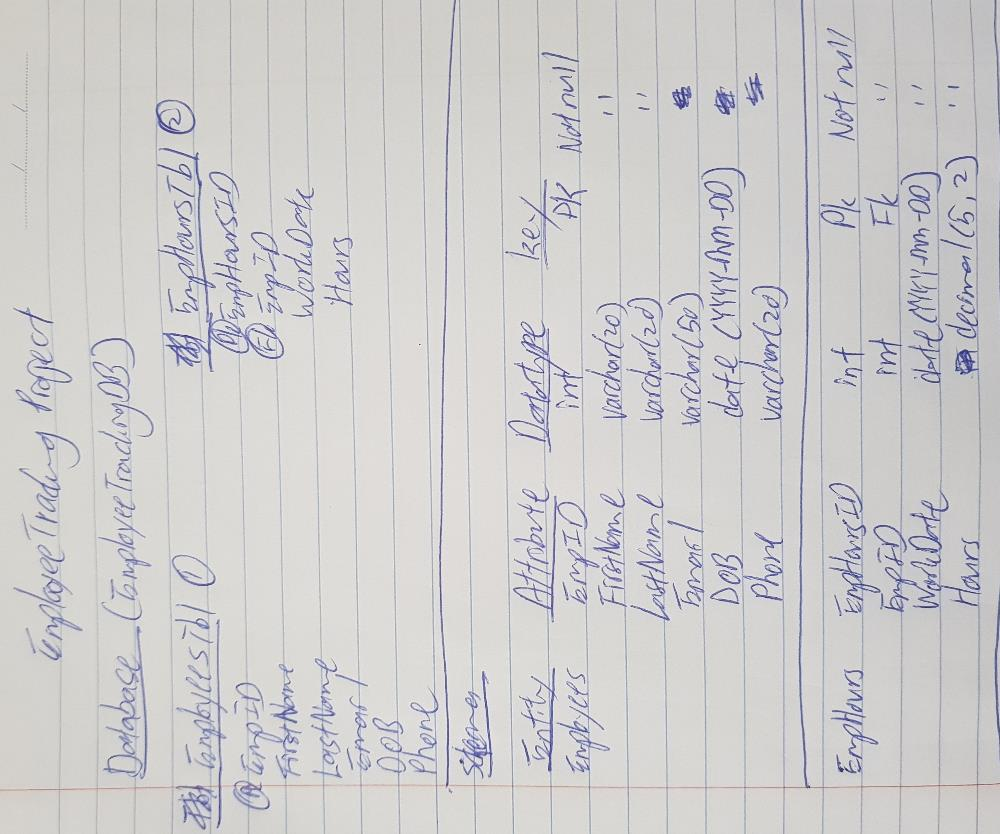 Employee Trading Project
Database (EmployeeTradingDB)
EmployeesTbl ① EmpHoursTbl ②
EmpID EmpHoursID
FirstName EmpID
LastName WorkDate
Email Hours
DOB
Phone
Schema
Entity Attribute Datatype key
Employees EmpID int PK Not null
FirstName varchar(20) ''
LastName varchar(20) ''
Email varchar(50)
DOB date (YYYY-MM-DD)
Phone varchar(20)
EmpHours EmpHoursID int Pk Not null
EmpID int Fk ''
WorkDate date (YYYY-MM-DD) ''
Hours decimal(5, 2) ''